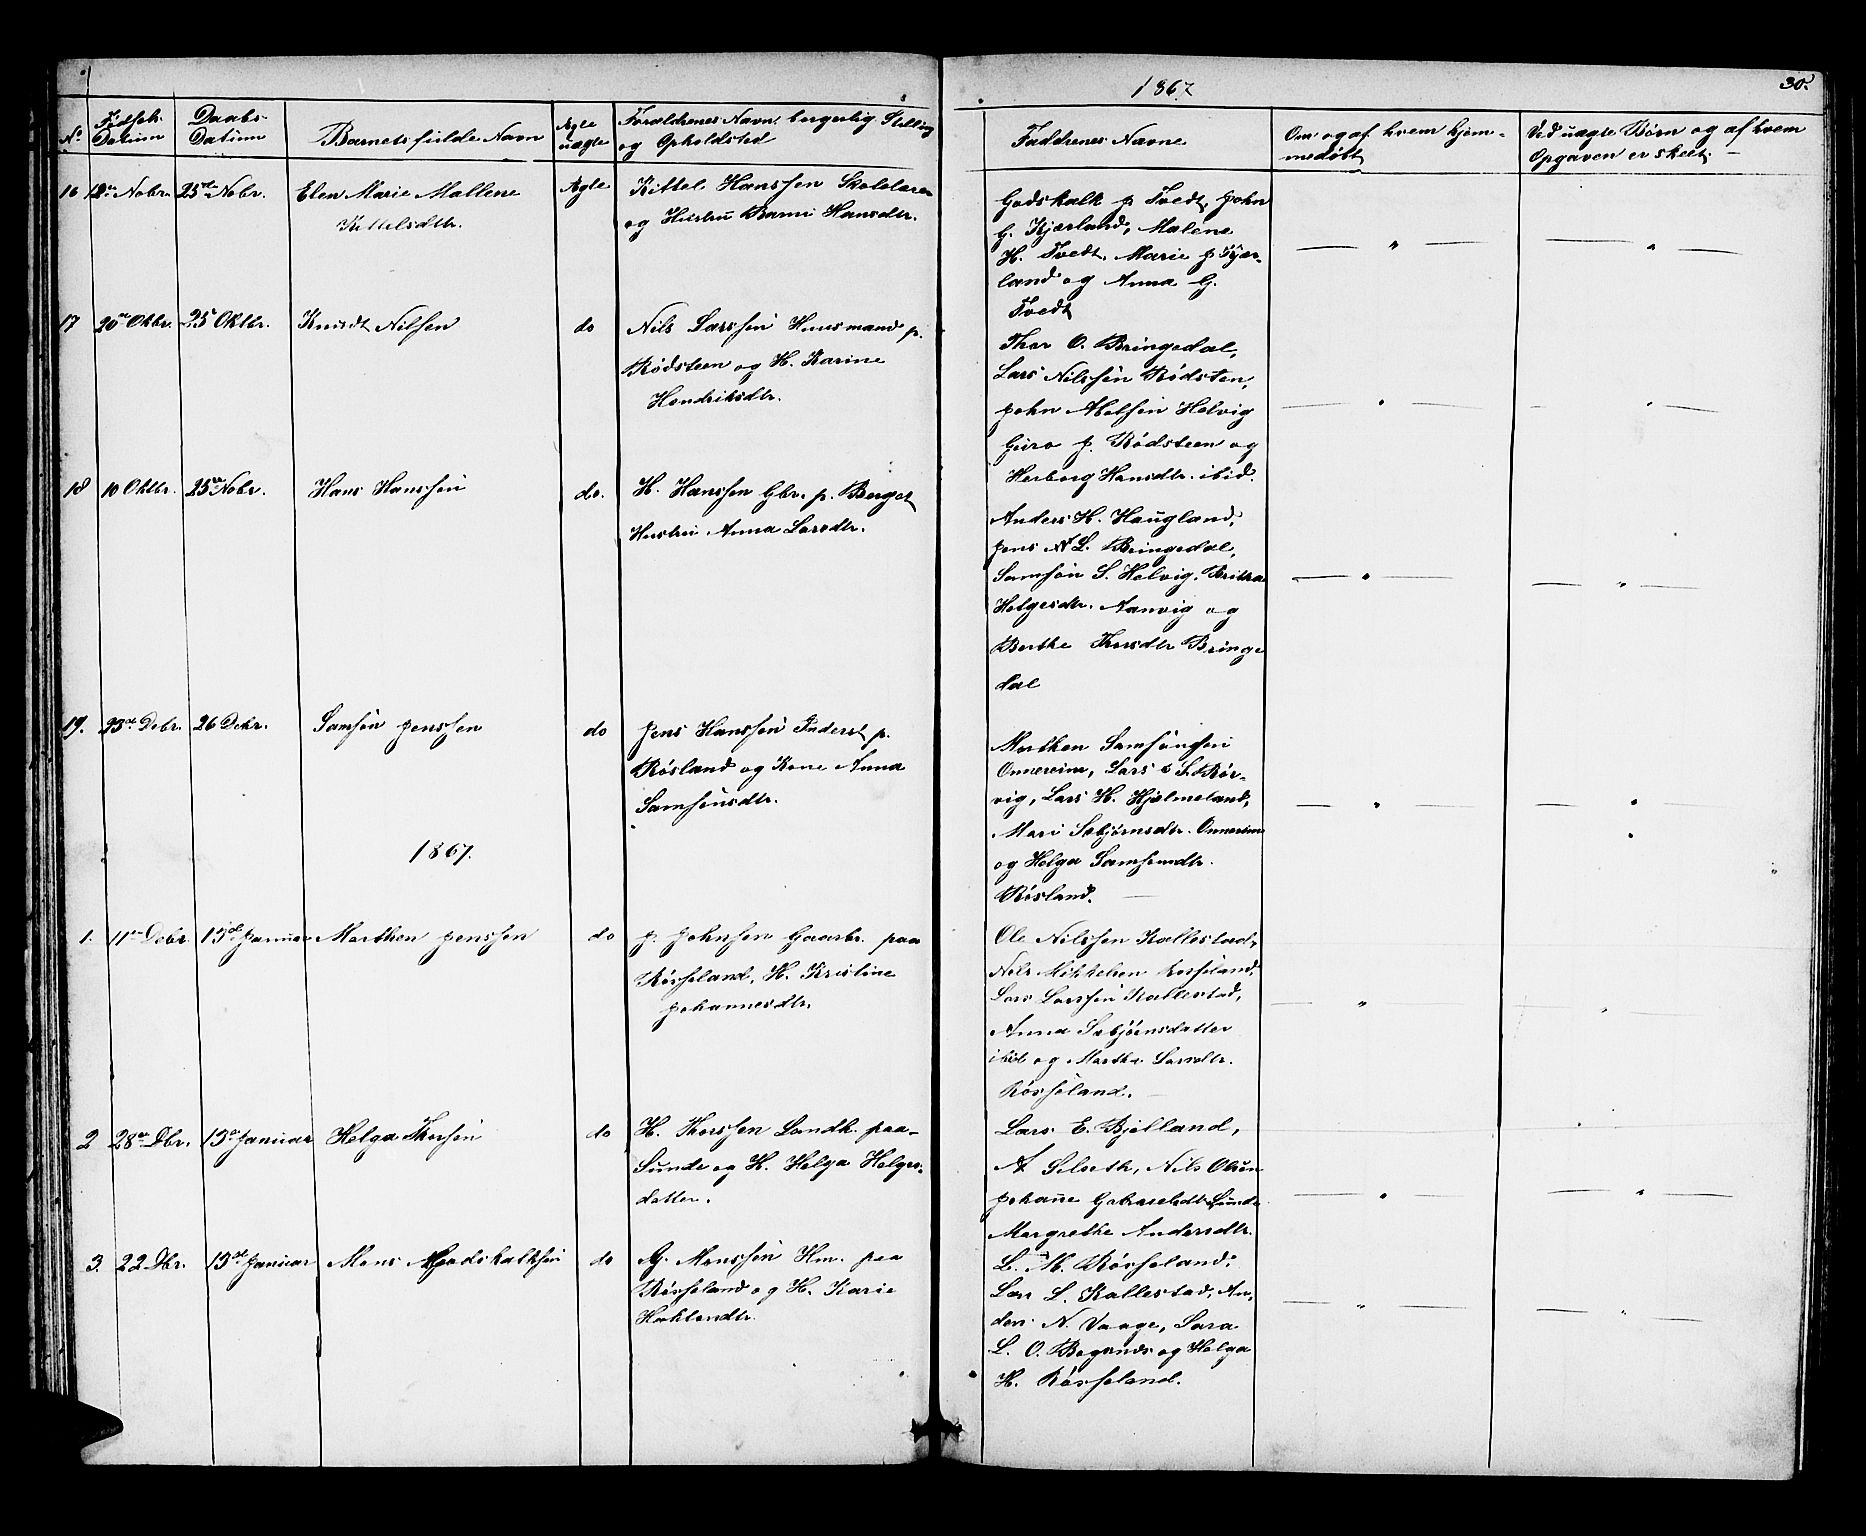 1867.
30.
No
Fødsels Datum
Daabs Datum
Barnets fulde Navn
Ægte uægte
Forældrenes Navn, borgerlig Stilling
og Opholdsted
Faddrenes Navne
Om og af hvem hjem-
medøbt
Ved uægte Børn og af hvem
Opgaven er skeet. —
16 12te Nobr. 25de Nobr. Elen Marie Mallene Ægte Kittel Hanssen Skolelærer
Kittelsdtr.
og Hustru Barni Hansdtr.
Godskalk J Tvedt, John
G. Kjærland, Malene
H. Tvedt, Marie J Kjær-
land og Anna G.
Tvedt
17 20de Oktbr. 25 Oktbr. Knudt Nilsen do Nils Larssen Huusmand p.
Rødsteen og H. Karine
Hendriksdtr.
Thor O. Bringedal,
Lars Nilssen Rødsten,
John Abelsen Helvig
Guro J. Rødsteen og
Herborg Hansdtr. ibid.
18 10 Oktbr. 25de Nobr. Hans Hanssen do. H. Hanssen Gbr. p. Berget
Hustru Anna Larsdtr.
Anders H. Haugland,
Jens N L. Bringedal,
Samson S. Helvig, Britha
Helgesdtr. Aanvig og
Berthe Thorsdtr Bringe
dal
19. 25de Debr. 26 Debr. Samson Jenssen do Jens Hanssen Inderst p.
Røsland og Kone Anna
Samsonsdtr.
Marthen Samsonsen
Onnereim, Lars S. Rør-
vig, Lars H. Hjelmeland,
Mari Sebjørnsdtr. Onnereim
og Helga Samsonsdtr.
Røsland. —
1867.
1. 11te Debr. 13de Januar Marthen Jenssen do J. Johnsen Gaarbr. paa
Røsseland, H. Kristine
Johannesdtr.
Ole Nilssen Kallestad,
Nils Mikkelsen Røsseland,
Lars Larssen Kallestad,
Anna Sebjørnsdatter
ibid og Martha Larsdtr.
Røsseland. —
2 28de Dbr. 13de Januar Helga Thorsen do H. Thorssen Landh. paa
Sunde og H. Helga Helges-
datter.
Lars E. Bjelland,
A Selseth, Nils Olsen
Johanne Gabrielsdtr Sunde
Margrethe Andersdtr.
3. 22 Dbr. 13de Januar Mons Godskalksen do G. Monssen Hm. paa
Røsseland og H. Karie
Haktordtr.
L. M. Røsseland,
Lars L. Kallestad, An-
ders N. Vaage, Sara
L. O. og Helga
H. Røsseland.